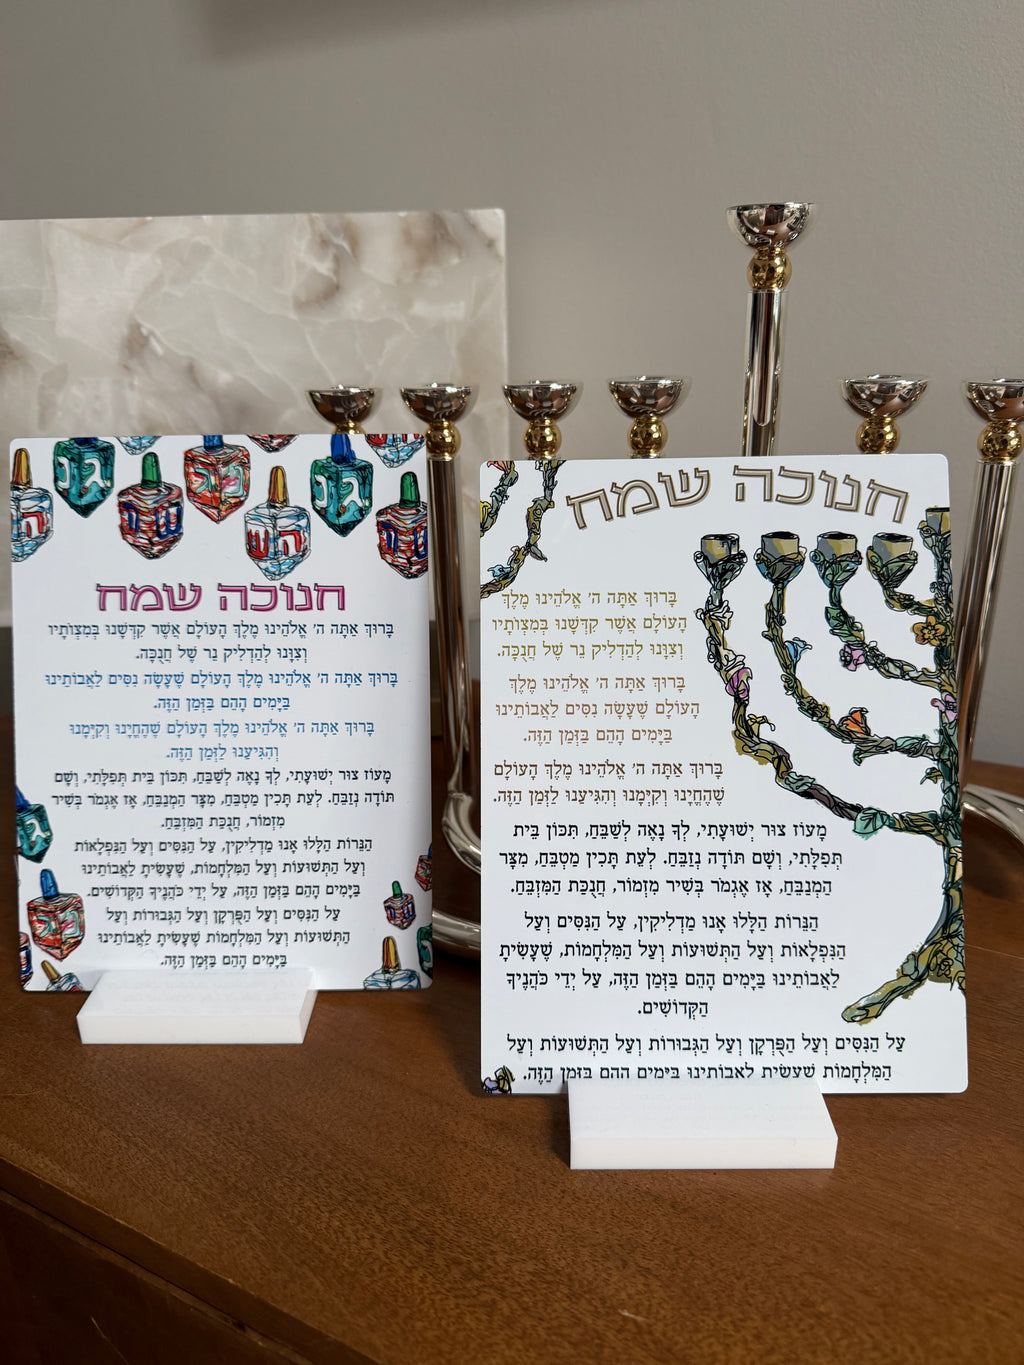 ג נ
ה
ש
ה ש
ג נ
ש
חנוכה שמח
בָּרוּךְ אַתָּה ה' אֱלֹהֵינוּ מֶלֶךְ הָעוֹלָם אֲשֶׁר קִדְּשָׁנוּ בְּמִצְוֹתָיו
וְצִוָּנוּ לְהַדְלִיק נֵר שֶׁל חֲנֻכָּה.
בָּרוּךְ אַתָּה ה' אֱלֹהֵינוּ מֶלֶךְ הָעוֹלָם שֶׁעָשָׂה נִסִּים לַאֲבוֹתֵינוּ
בַּיָּמִים הָהֵם בַּזְּמַן הַזֶּה.
בָּרוּךְ אַתָּה ה' אֱלֹהֵינוּ מֶלֶךְ הָעוֹלָם שֶׁהֶחֱיָנוּ וְקִיְּמָנוּ
וְהִגִּיעָנוּ לַזְּמַן הַזֶּה.
מָעוֹז צוּר יְשׁוּעָתִי, לְךָ נָאֶה לְשַׁבֵּחַ, תִּכּוֹן בֵּית תְּפִלָּתִי, וְשָׁם
תּוֹדָה נְזַבֵּחַ. לְעֵת תָּכִין מַטְבֵּחַ, מִצָּר הַמְנַבֵּחַ, אָז אֶגְמֹר בְּשִׁיר
מִזְמוֹר, חֲנֻכַּת הַמִּזְבֵּחַ.
הַנֵּרוֹת הַלָּלוּ אָנוּ מַדְלִיקִין, עַל הַנִּסִּים וְעַל הַנִּפְלָאוֹת
וְעַל הַתְּשׁוּעוֹת וְעַל הַמִּלְחָמוֹת, שֶׁעָשִׂיתָ לַאֲבוֹתֵינוּ
בַּיָּמִים הָהֵם בַּזְּמַן הַזֶּה, עַל יְדֵי כֹּהֲנֶיךָ הַקְּדוֹשִׁים.
עַל הַנִּסִּים וְעַל הַפֻּרְקָן וְעַל הַגְּבוּרוֹת וְעַל
הַתְּשׁוּעוֹת וְעַל הַמִּלְחָמוֹת שֶׁעָשִׂיתָ לַאֲבוֹתֵינוּ
בַּיָּמִים הָהֵם בַּזְּמַן הַזֶּה.
חנוכה שמח
בָּרוּךְ אַתָּה ה' אֱלֹהֵינוּ מֶלֶךְ
הָעוֹלָם אֲשֶׁר קִדְּשָׁנוּ בְּמִצְוֹתָיו
וְצִוָּנוּ לְהַדְלִיק נֵר שֶׁל חֲנֻכָּה.
בָּרוּךְ אַתָּה ה' אֱלֹהֵינוּ מֶלֶךְ
הָעוֹלָם שֶׁעָשָׂה נִסִּים לַאֲבוֹתֵינוּ
בַּיָּמִים הָהֵם בַּזְּמַן הַזֶּה.
בָּרוּךְ אַתָּה ה' אֱלֹהֵינוּ מֶלֶךְ הָעוֹלָם
שֶׁהֶחֱיָנוּ וְקִיְּמָנוּ וְהִגִּיעָנוּ לַזְּמַן הַזֶּה.
מָעוֹז צוּר יְשׁוּעָתִי, לְךָ נָאֶה לְשַׁבֵּחַ, תִּכּוֹן בֵּית
תְּפִלָּתִי, וְשָׁם תּוֹדָה נְזַבֵּחַ. לְעֵת תָּכִין מַטְבֵּחַ, מִצָּר
הַמְנַבֵּחַ, אָז אֶגְמֹר בְּשִׁיר מִזְמוֹר, חֲנֻכַּת הַמִּזְבֵּחַ.
הַנֵּרוֹת הַלָּלוּ אָנוּ מַדְלִיקִין, עַל הַנִּסִּים וְעַל
הַנִּפְלָאוֹת וְעַל הַתְּשׁוּעוֹת וְעַל הַמִּלְחָמוֹת, שֶׁעָשִׂיתָ
לַאֲבוֹתֵינוּ בַּיָּמִים הָהֵם בַּזְּמַן הַזֶּה, עַל יְדֵי כֹּהֲנֶיךָ
הַקְּדוֹשִׁים.
עַל הַנִּסִּים וְעַל הַפֻּרְקָן וְעַל הַגְּבוּרוֹת וְעַל הַתְּשׁוּעוֹת וְעַל
הַמִּלְחָמוֹת שֶׁעָשִׂיתָ לַאֲבוֹתֵינוּ בַּיָּמִים הָהֵם בַּזְּמַן הַזֶּה.